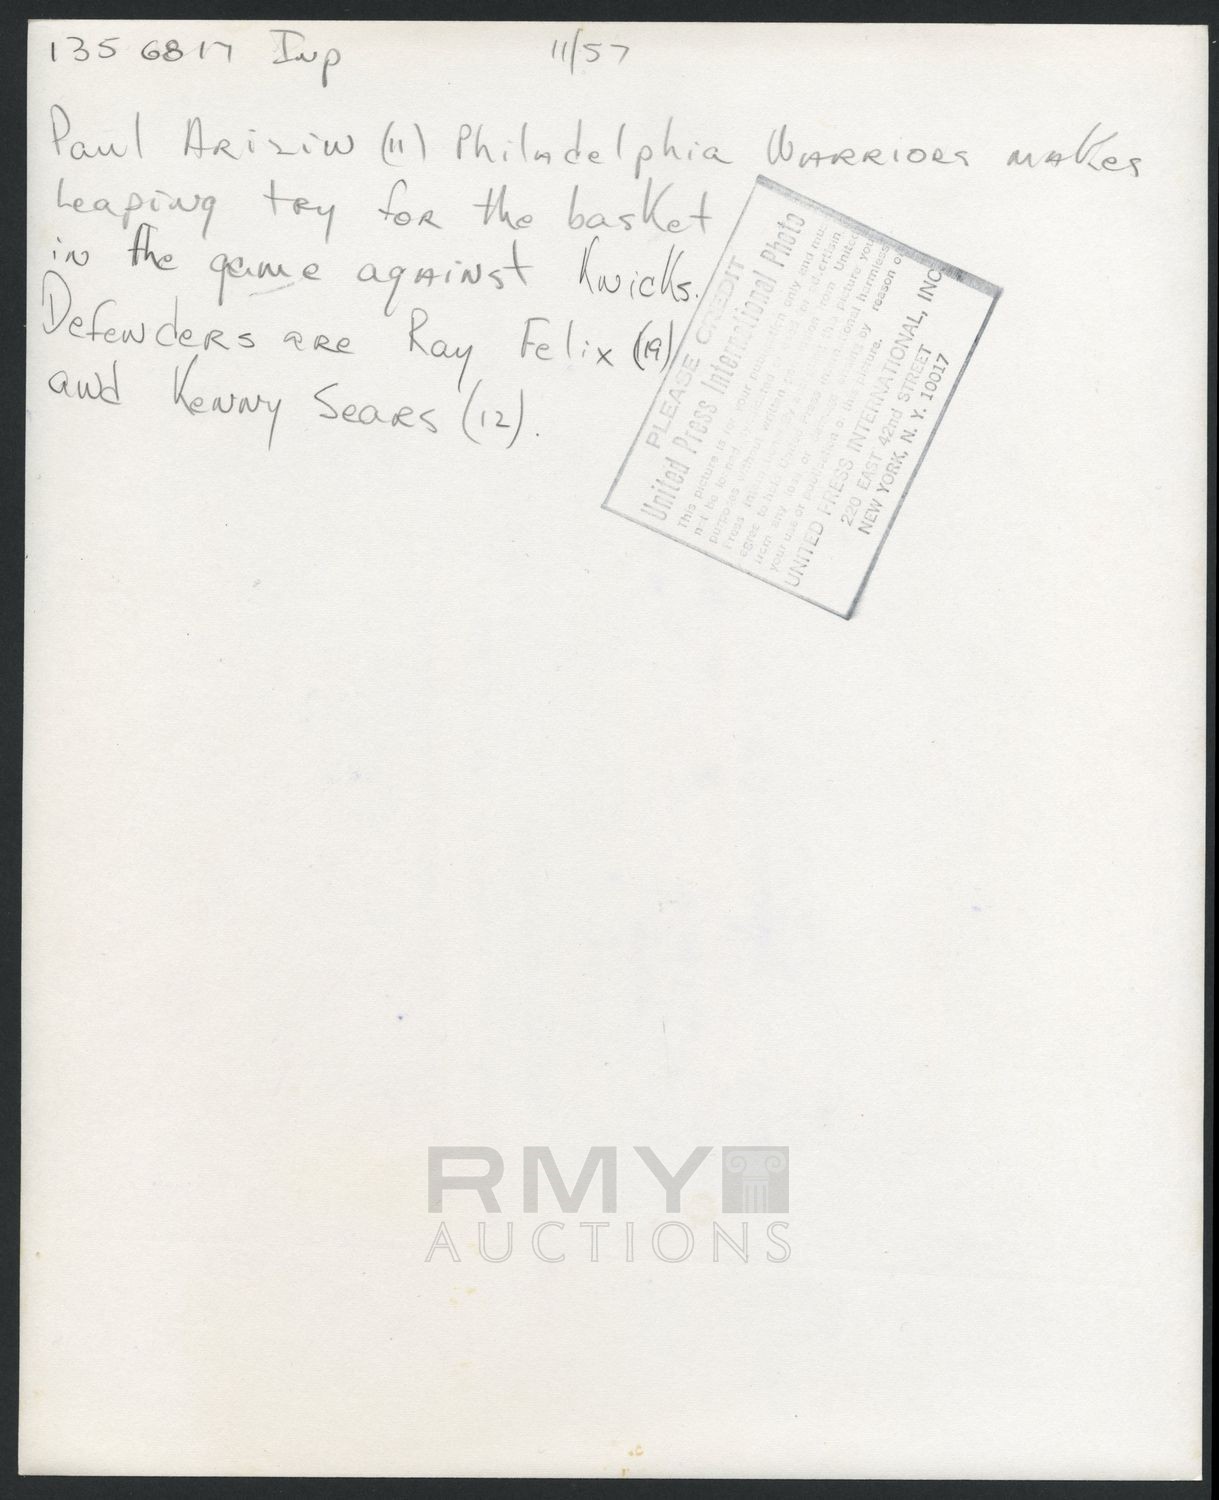 135 6817 Inp 11/57
Paul Arizin (11) Philadelphia Warriors makes
leaping try for the basket
in the game against Knicks.
Defenders are Ray Felix (19)
and Kenny Sears (12).
PLEASE CREDIT
United Press International Photo
This picture is for your publication only and mus
not be loaned, advertisin
purposes without written from United
Press International this picture you
agree to hold United Press International harmless
from any loss or by reason o
your use or publication of this picture.
UNITED PRESS INTERNATIONAL, INC
220 EAST 42nd STREET
NEW YORK, N. Y. 10017
RMY
AUCTIONS